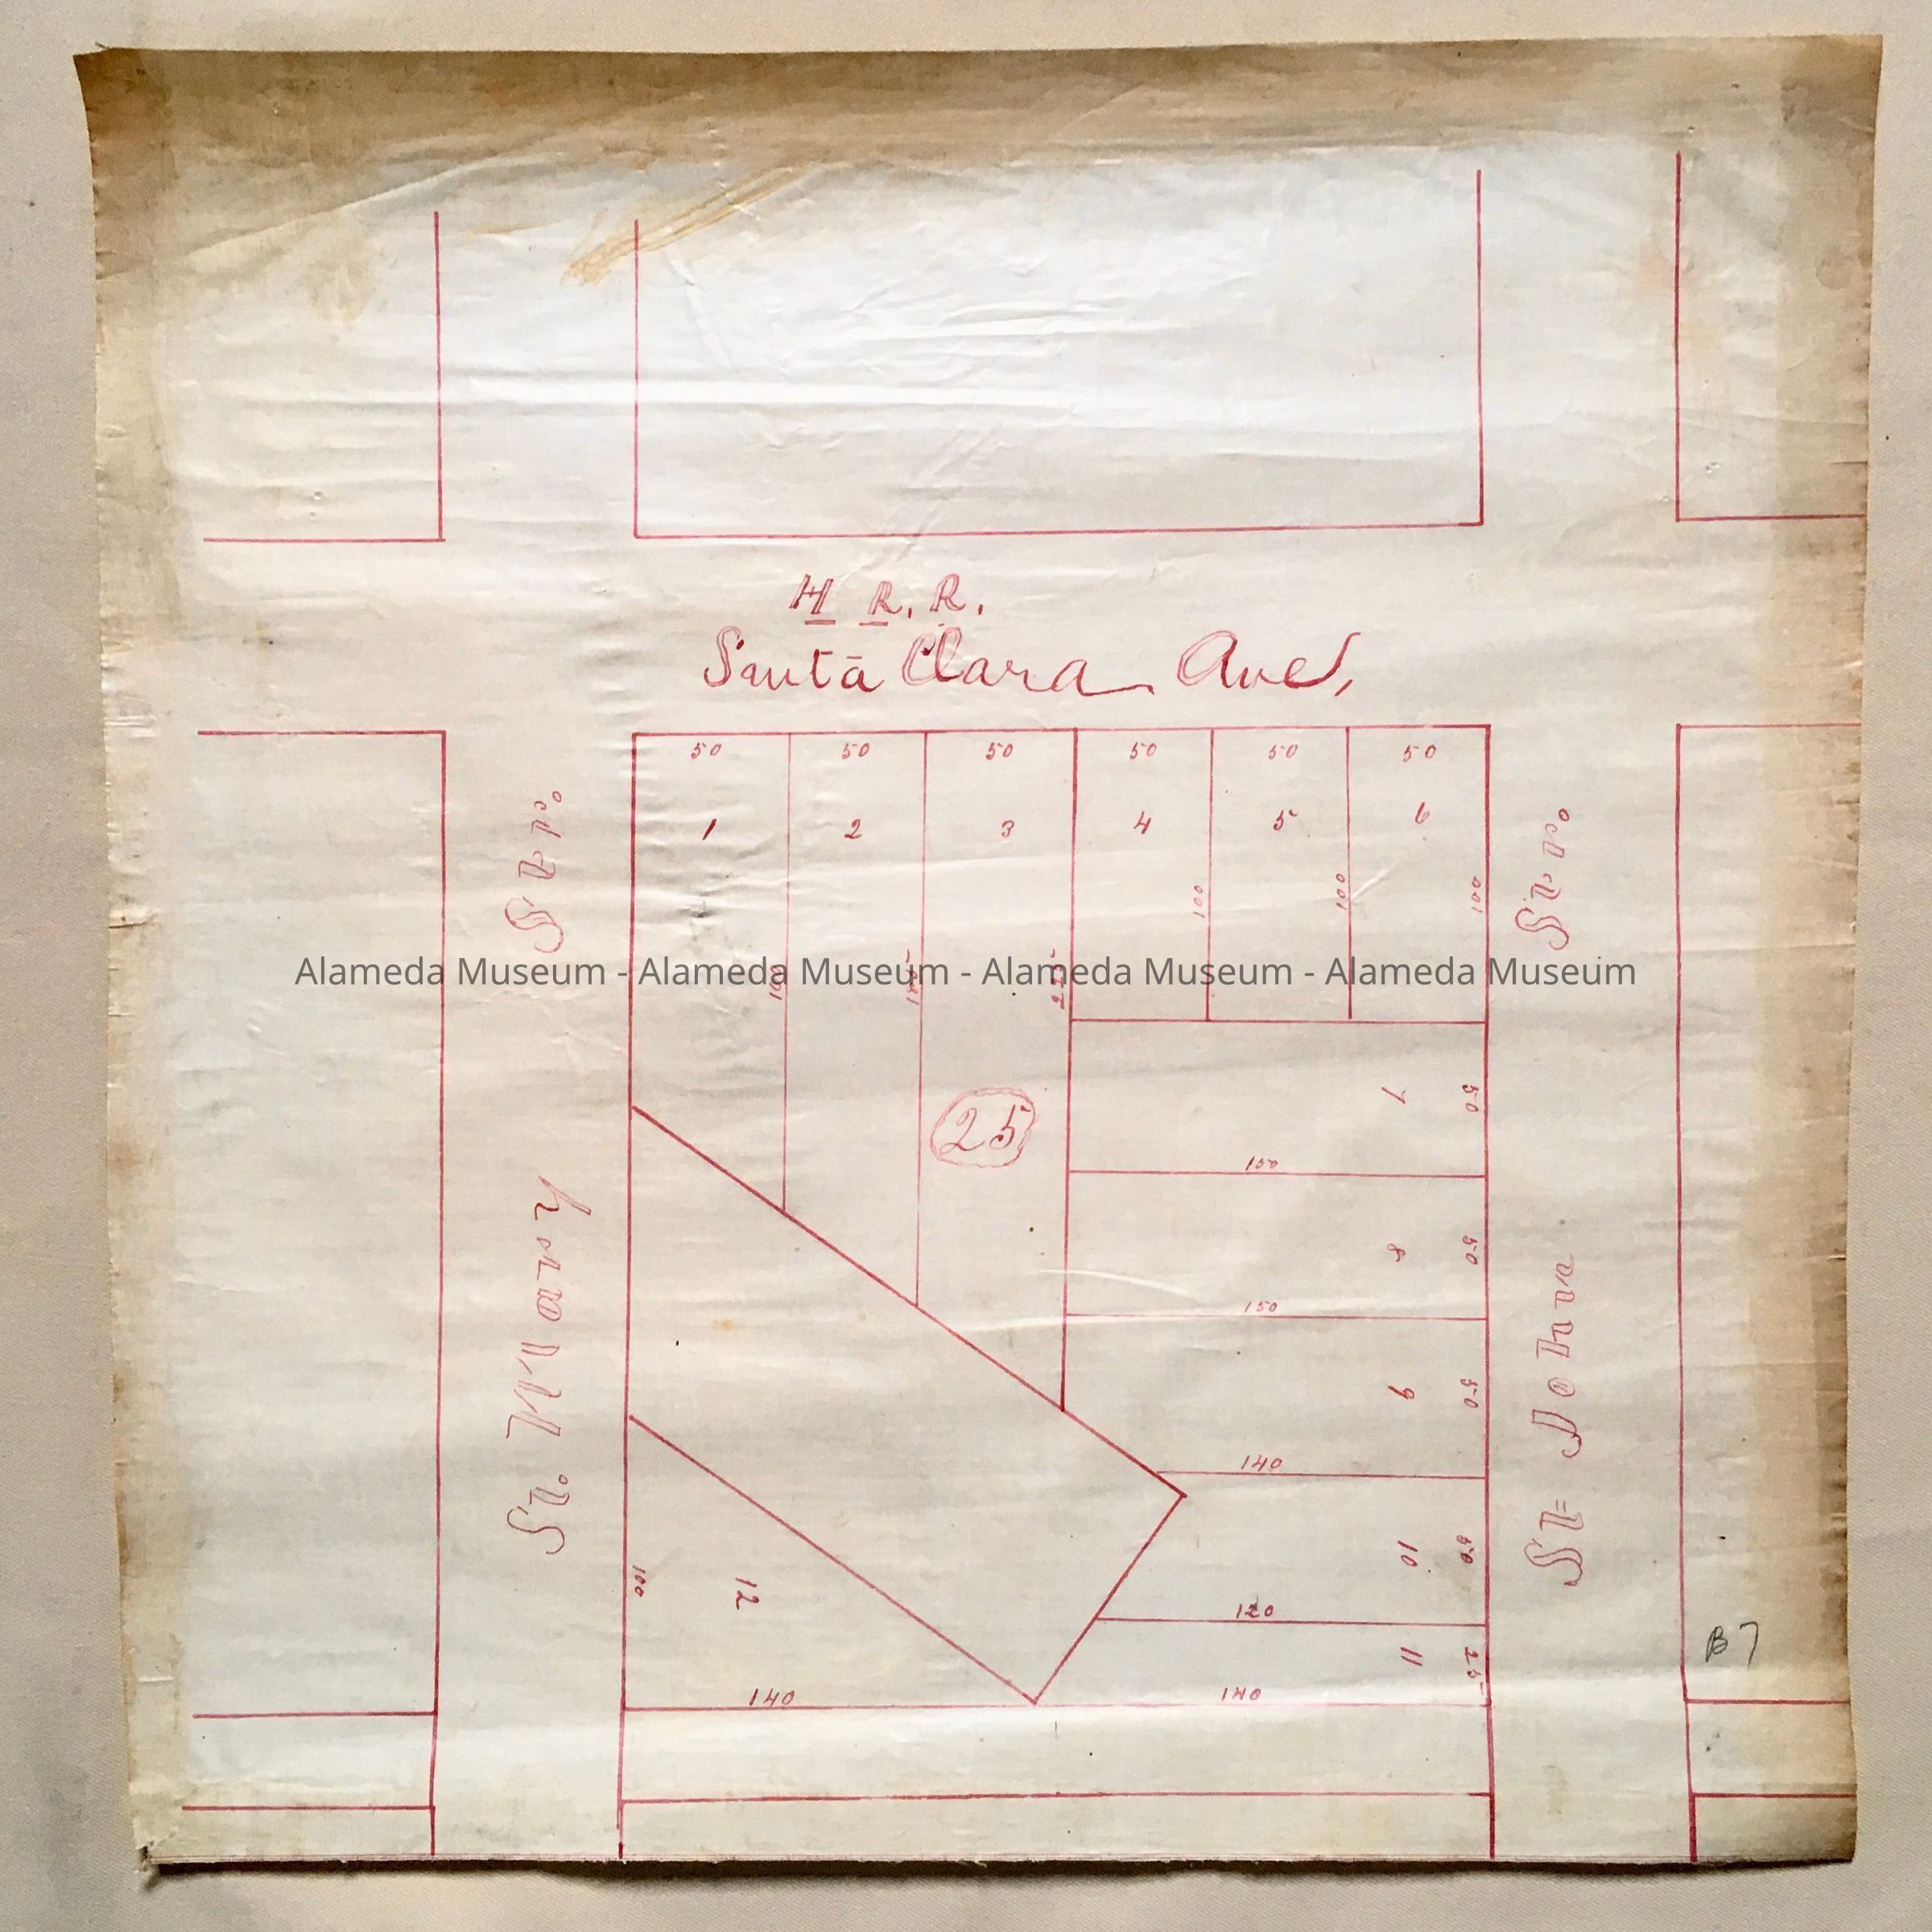 H R. R.
Santa Clara Ave,
50 50 50 50 50 50
1 2 3 4 5 6
100 100 100
Str.
Str.
Alameda Museum - Alameda Museum - Alameda Museum - Alameda Museum
25
7 50
150
8 50
150
9 50
140
10 50
120
11 25
St. Mary
St= John
100
12
140 140
B7